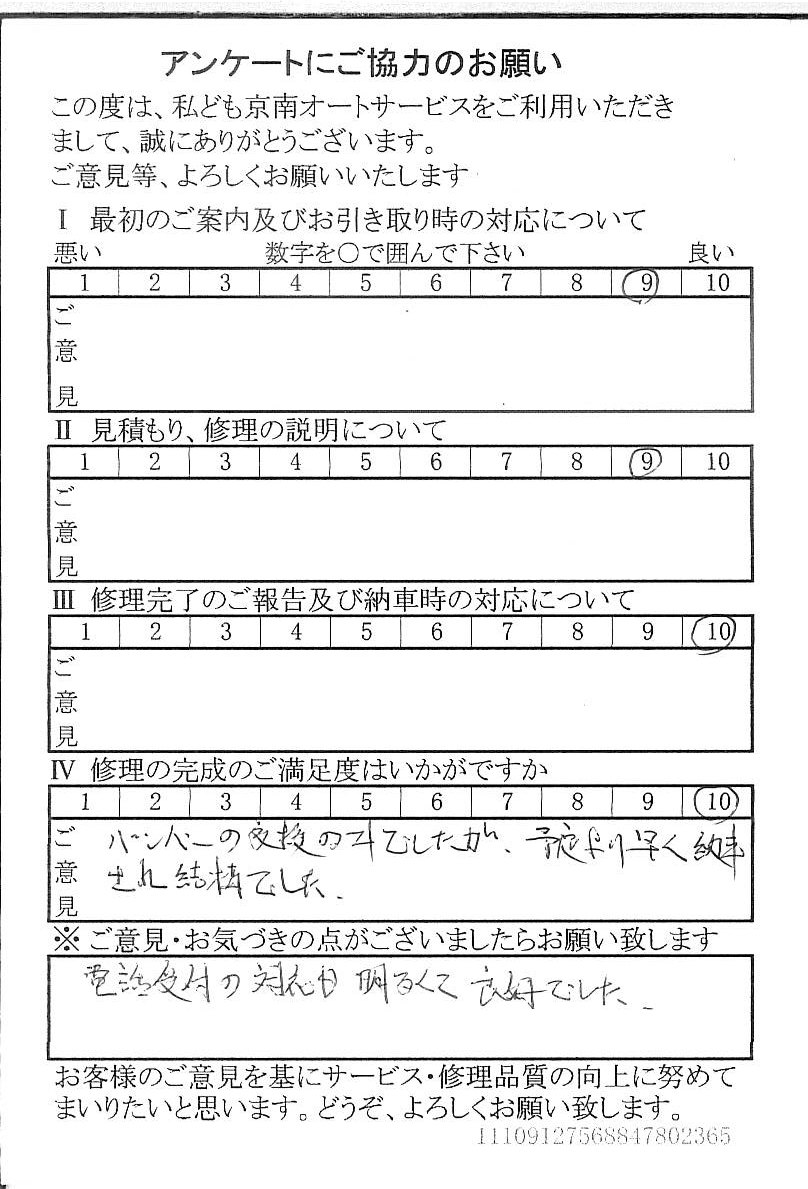 アンケートにご協力のお願い
この度は、私ども京南オートサービスをご利用いただき
まして、誠にありがとうございます。
ご意見等、よろしくお願いいたします
Ⅰ 最初のご案内及びお引き取り時の対応について
悪い 数字を○で囲んで下さい 良い
1 2 3 4 5 6 7 8 9 10
ご
意
見
Ⅱ 見積もり、修理の説明について
1 2 3 4 5 6 7 8 9 10
ご
意
見
Ⅲ 修理完了のご報告及び納車時の対応について
1 2 3 4 5 6 7 8 9 10
ご
意
見
Ⅳ 修理の完成のご満足度はいかがですか
1 2 3 4 5 6 7 8 9 10
ご意見
バンパーの交換のみでしたが、予定より早く納車
され結構でした.
※ ご意見・お気づきの点がございましたらお願い致します
電話受付の対応も明るくて良好でした.
お客様のご意見を基にサービス・修理品質の向上に努めて
まいりたいと思います。どうぞ、よろしくお願い致します。
11109127568847802365